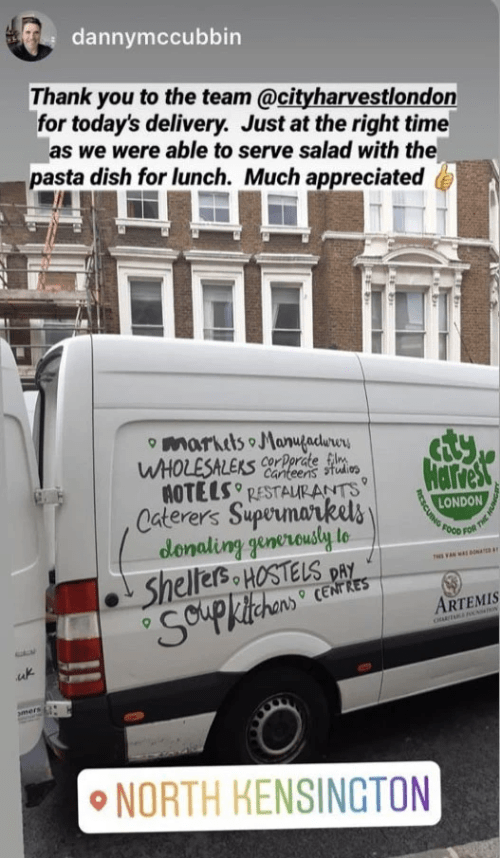 dannymccubbin
Thank you to the team @cityharvestlondon
for today's delivery. Just at the right time
as we were able to serve salad with the
pasta dish for lunch. Much appreciated 👍
markets Manufacturers
WHOLESALERS Corporate Canteens film studios
HOTELS RESTAURANTS
Caterers Supermarkets
donating generously to
shelters HOSTELS DAY CENTRES
soup kitchens
City
Harvest
LONDON
RESCUING FOOD FOR THE HUNGRY
THIS VAN WAS DONATED BY
ARTEMIS
CHARITABLE FOUNDATION
uk
NORTH KENSINGTON